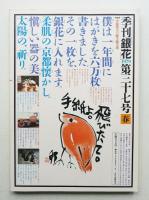 季刊銀花
第二十七号
春
僕は一年間に
はがきを六万枚
書きました
その一枚を、
銀花に入れます。
柔肌の京都懐かし。
愼しい器の美、
太陽の、祈り。
手紙よ。
飛びたて。